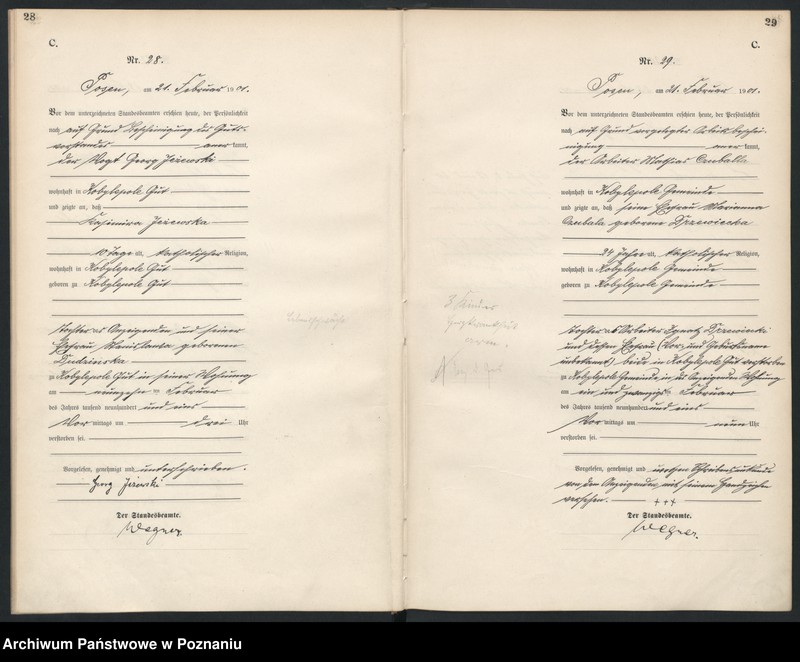 28
C.
Nr. 28.
Posen, am 21. Februar 1901.
Vor dem unterzeichneten Standesbeamten erschien heute, der Persönlichkeit
nach auf Grund Bescheinigung des Guts-
vorstandes anerkannt,
der Vogt Georg Jezewski
wohnhaft in Kobylepole Gut
und zeigte an, daß
Kasimira Jezewska
10 Tage alt, katholischer Religion,
wohnhaft in Kobylepole Gut
geboren zu Kobylepole Gut
Tochter des Anzeigenden und seiner
Ehefrau Stanislawa geborenen
zu Kobylepole Gut in seiner Wohnung
am neunzehn Februar
des Jahres tausend neunhundert und eins
Vor mittags um drei Uhr
verstorben sei.
Vorgelesen, genehmigt und unterschrieben.
Georg Jeżewski
Der Standesbeamte.
Wegner.
29
C.
Nr. 29.
Posen, am 21. Februar 1901.
Vor dem unterzeichneten Standesbeamten erschien heute, der Persönlichkeit
nach auf Grund vorgelegter Arbeitsbeschei-
nigung anerkannt,
der Arbeiter Mathias
wohnhaft in Kobylepole Gemeinde
und zeigte an, daß seine Ehefrau Marianna
geborene
24 Jahre alt, katholischer Religion,
wohnhaft in Kobylepole Gemeinde
geboren zu Kobylepole Gemeinde
Tochter des Arbeiter Ignatz
und dessen Ehefrau (Vor- und Geburtsname
unbekannt) beide in Kobylepole Gut verstorben
zu Kobylepole Gemeinde in des Anzeigenden Wohnung
am ein und zwanzigsten Februar
des Jahres tausend neunhundert und eins
Vor mittags um neun Uhr
verstorben sei.
Vorgelesen, genehmigt und wegen Schreibensunkunde
von dem Anzeigenden mit seinem Handzeichen
versehen. +++
Der Standesbeamte.
Wegner.
Archiwum Państwowe w Poznaniu